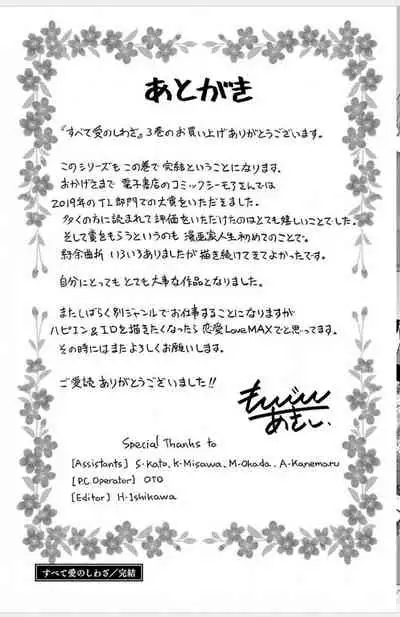 あとがき
『すべて愛のしわざ』3巻のお買い上げありがとうございます。
このシリーズもこの巻で完結ということになります。
おかげさまで電子書店のコミックシーモアさんでは
2019年のTL部門での大賞をいただきました。
多くの方に読まれて評価をいただけたのはとても嬉しいことでした。
そして賞をもらうというのも漫画家人生初めてのことで。
紆余曲折いろいろありましたが描き続けてきてよかったです。
自分にとってもとても大事な作品となりました。
またしばらく別ジャンルでお仕事することになりますが
ハピエン&エロを描きたくなったら恋愛LoveMAXでと思ってます。
その時にはまたよろしくお願いします。
ご愛読ありがとうございました!!
Special Thanks to
[Assistants] S・Kato、K・Misawa、M・Okada、A・Kanemaru
[P.C Operator] OTO
[Editor] H・Ishikawa
すべて愛のしわざ/完結